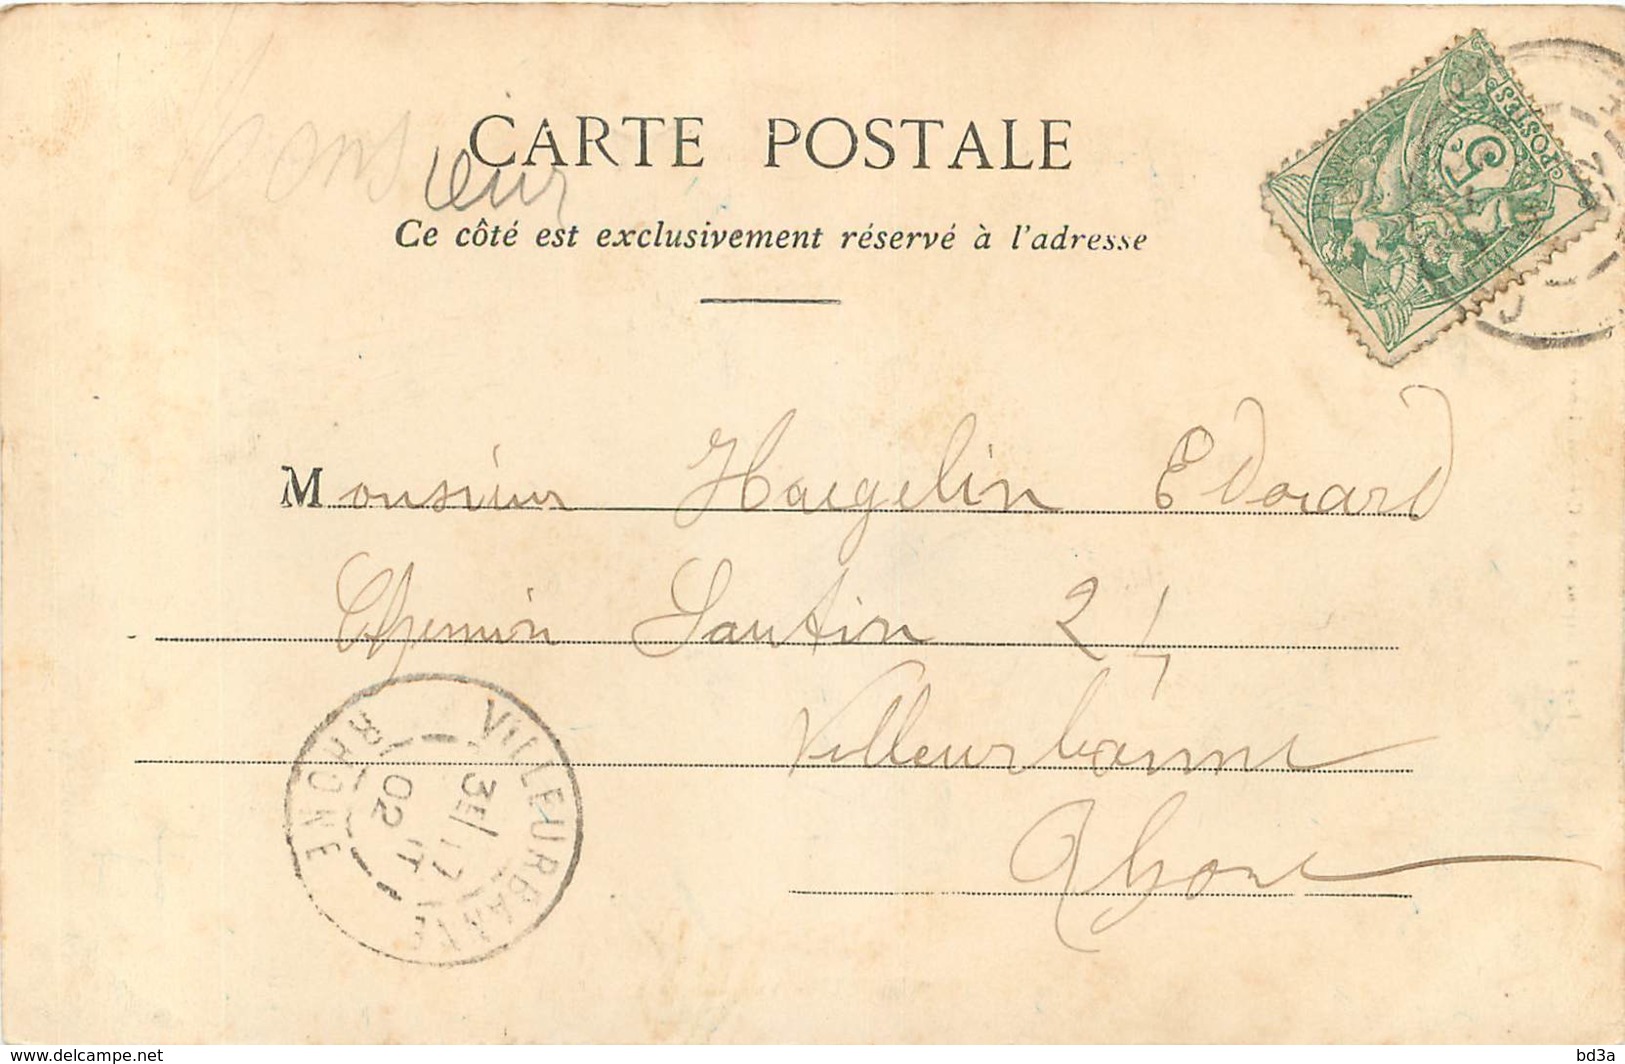 CARTE POSTALE
Monsieur
Ce côté est exclusivement réservé à l'adresse
POSTES
5
Monsieur Haegelin Edouard
Chemin Sautin 24
Villeurbanne
Rhone
VILLEURBANNE
3E/17
02
RHONE
www.delcampe.net
bd3a